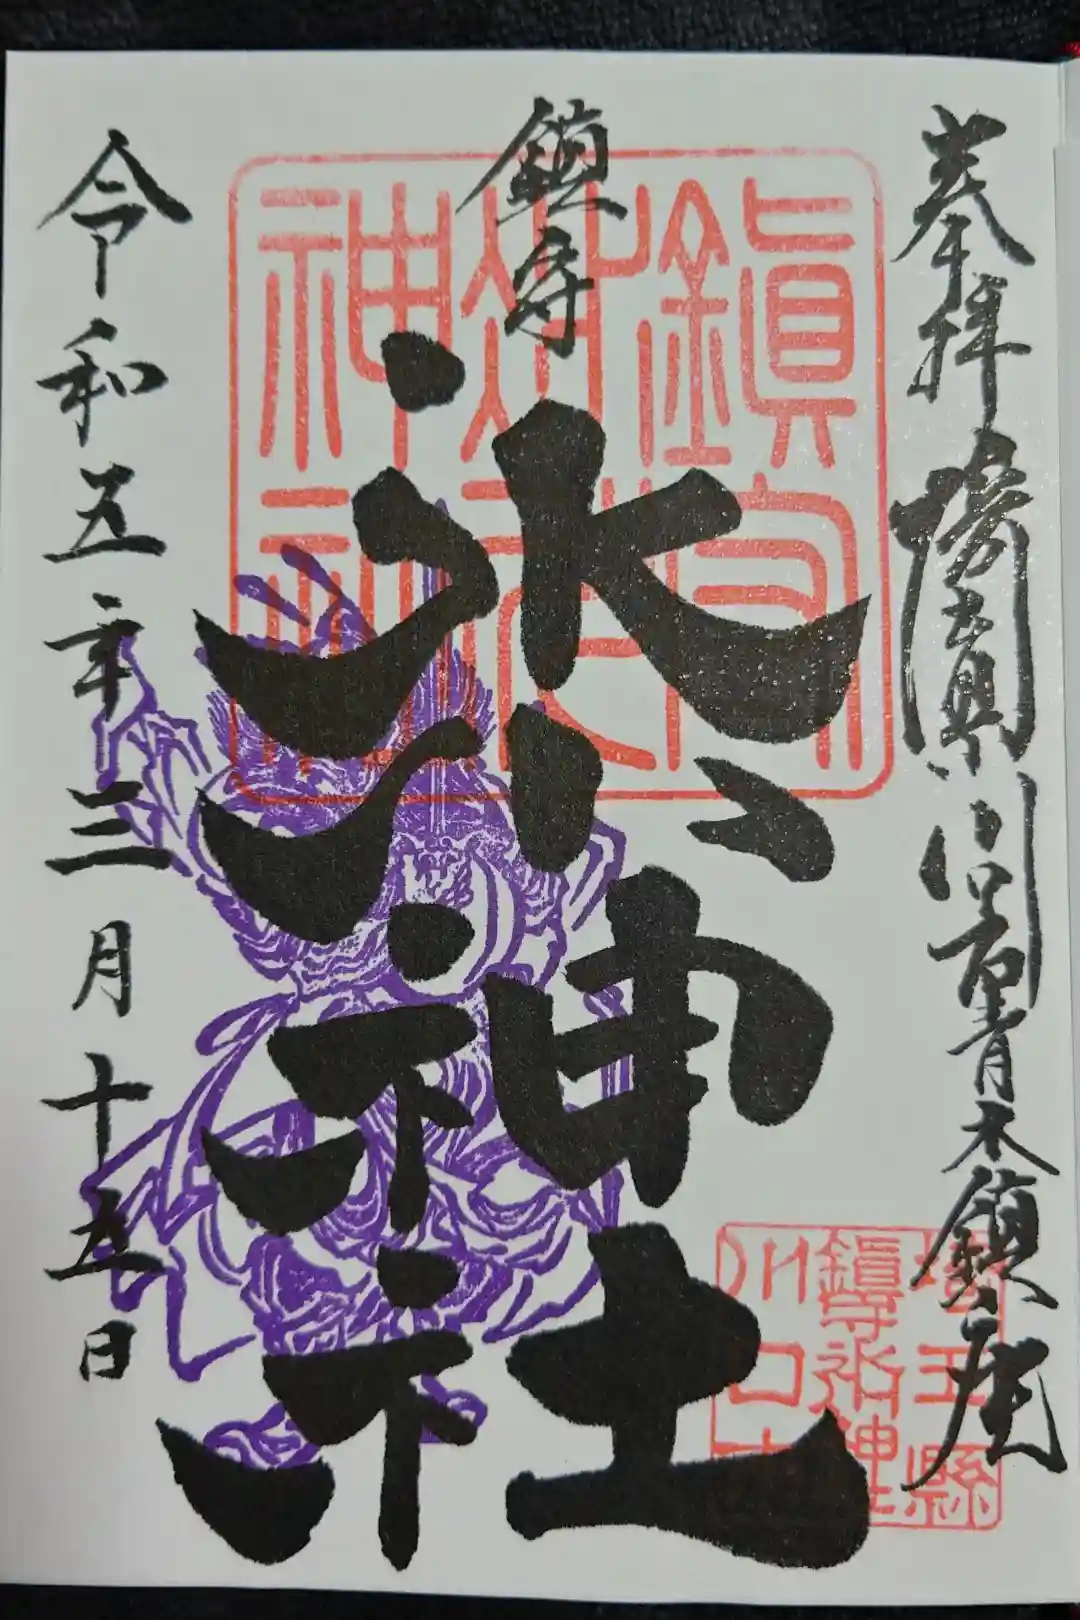 奉拝 埼玉縣川口市青木鎮座
鎮守
氷川神社
令和五年三月十五日
鎮守氷川神社
埼玉縣
鎮守氷川神社
川口市